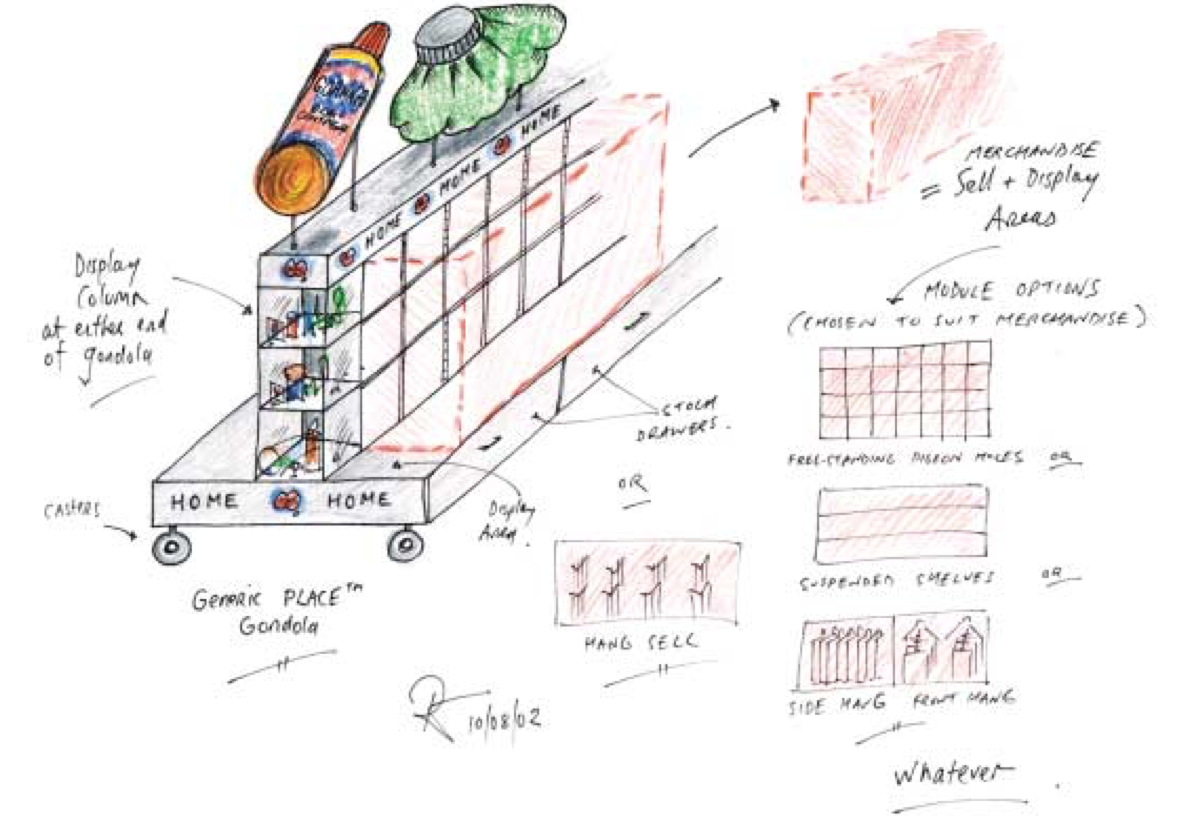 HOME
HOME
HOME
HOME
MERCHANDISE
= Sell + Display
Areas
Display
Column
at either end
of gondola
MODULE OPTIONS
(CHOSEN TO SUIT MERCHANDISE)
STOCK
DRAWERS.
FREE-STANDING PIGEON HOLES OR
OR
HOME HOME
CASTERS
Display
Area.
SUSPENDED SHELVES OR
Generic PLACE™
Gondola
HANG SELL
SIDE HANG FRONT HANG
10/08/02
Whatever.